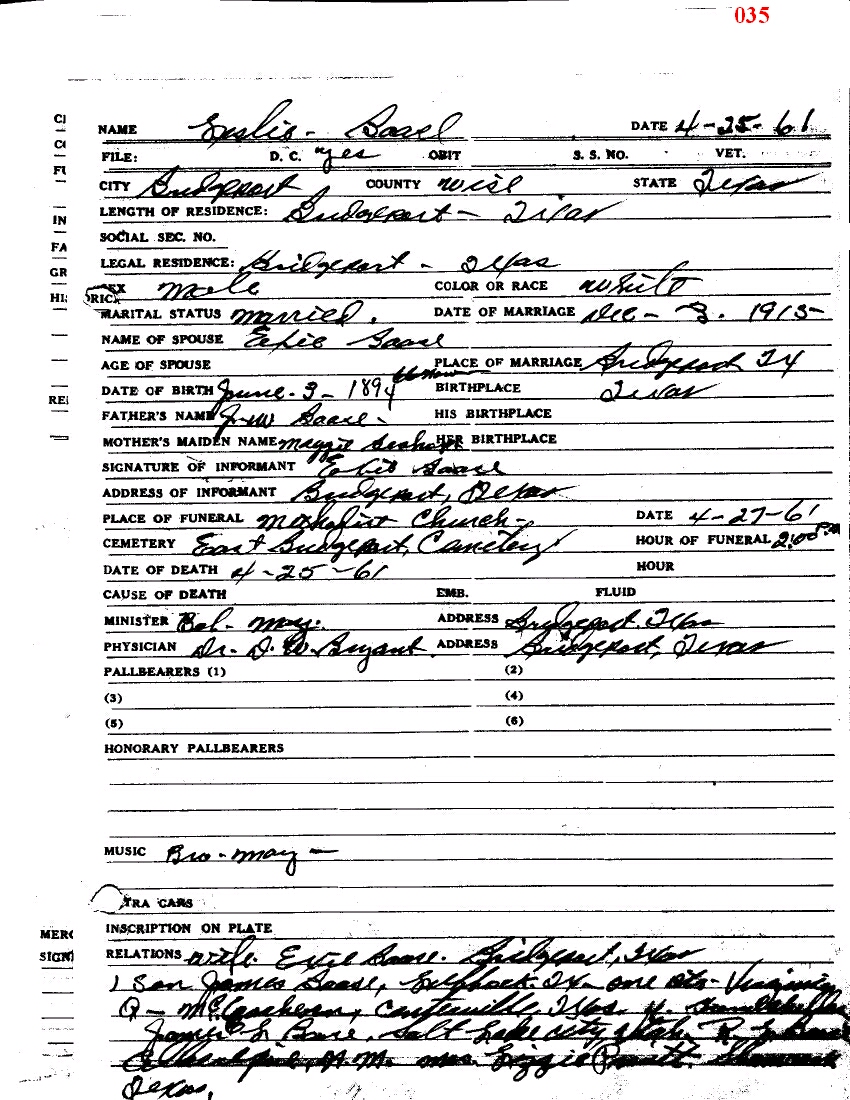 035
NAME Leslie - Boase DATE 4-25-61
FILE: D. C. yes OBIT S. S. NO. VET.
CITY Bridgeport COUNTY Wise STATE Texas
LENGTH OF RESIDENCE: Bridgeport - Texas
SOCIAL SEC. NO.
LEGAL RESIDENCE: Bridgeport - Texas
Male COLOR OR RACE White
MARITAL STATUS Married. DATE OF MARRIAGE Dec - 3. 1915
NAME OF SPOUSE Boase
AGE OF SPOUSE PLACE OF MARRIAGE Bridgeport TX
DATE OF BIRTH June - 3 - 1894 BIRTHPLACE Texas
FATHER'S NAME Boase - HIS BIRTHPLACE
MOTHER'S MAIDEN NAME Maggie HER BIRTHPLACE
SIGNATURE OF INFORMANT Boase
ADDRESS OF INFORMANT Bridgeport, Texas
PLACE OF FUNERAL Methodist Church - DATE 4-27-61
CEMETERY East Bridgeport, Cemetery HOUR OF FUNERAL 2:00 P.M
DATE OF DEATH 4-25-61 HOUR
CAUSE OF DEATH EMB. FLUID
MINISTER May. ADDRESS Bridgeport. Texas
PHYSICIAN Dr. D. W. Bryant ADDRESS Bridgeport, Texas
PALLBEARERS (1) (2)
(3) (4)
(5) (6)
HONORARY PALLBEARERS
MUSIC Bro - May -
TRA CARS
INSCRIPTION ON PLATE
MERC
SIGN
RELATIONS wife. Boase. Bridgeport, Texas
1 Son James Boase, TX - one Virginia
Texas. 4
James L Boase, Salt Lake City, Utah. R
N. M. Mrs. Lizzie
Texas.